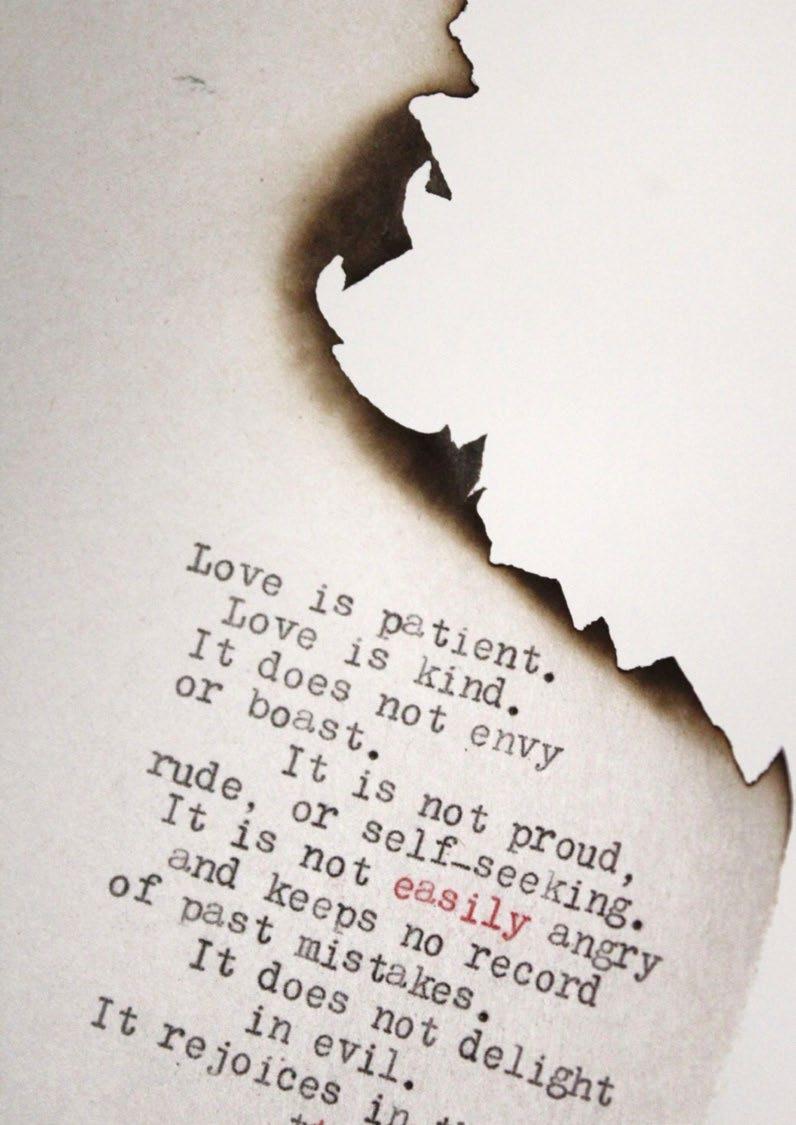 Love is patient.
Love is kind.
It does not envy
or boast.
It is not proud,
rude, or self-seeking.
It is not easily angry
and keeps no record
of past mistakes.
It does not delight
in evil.
It rejoices in